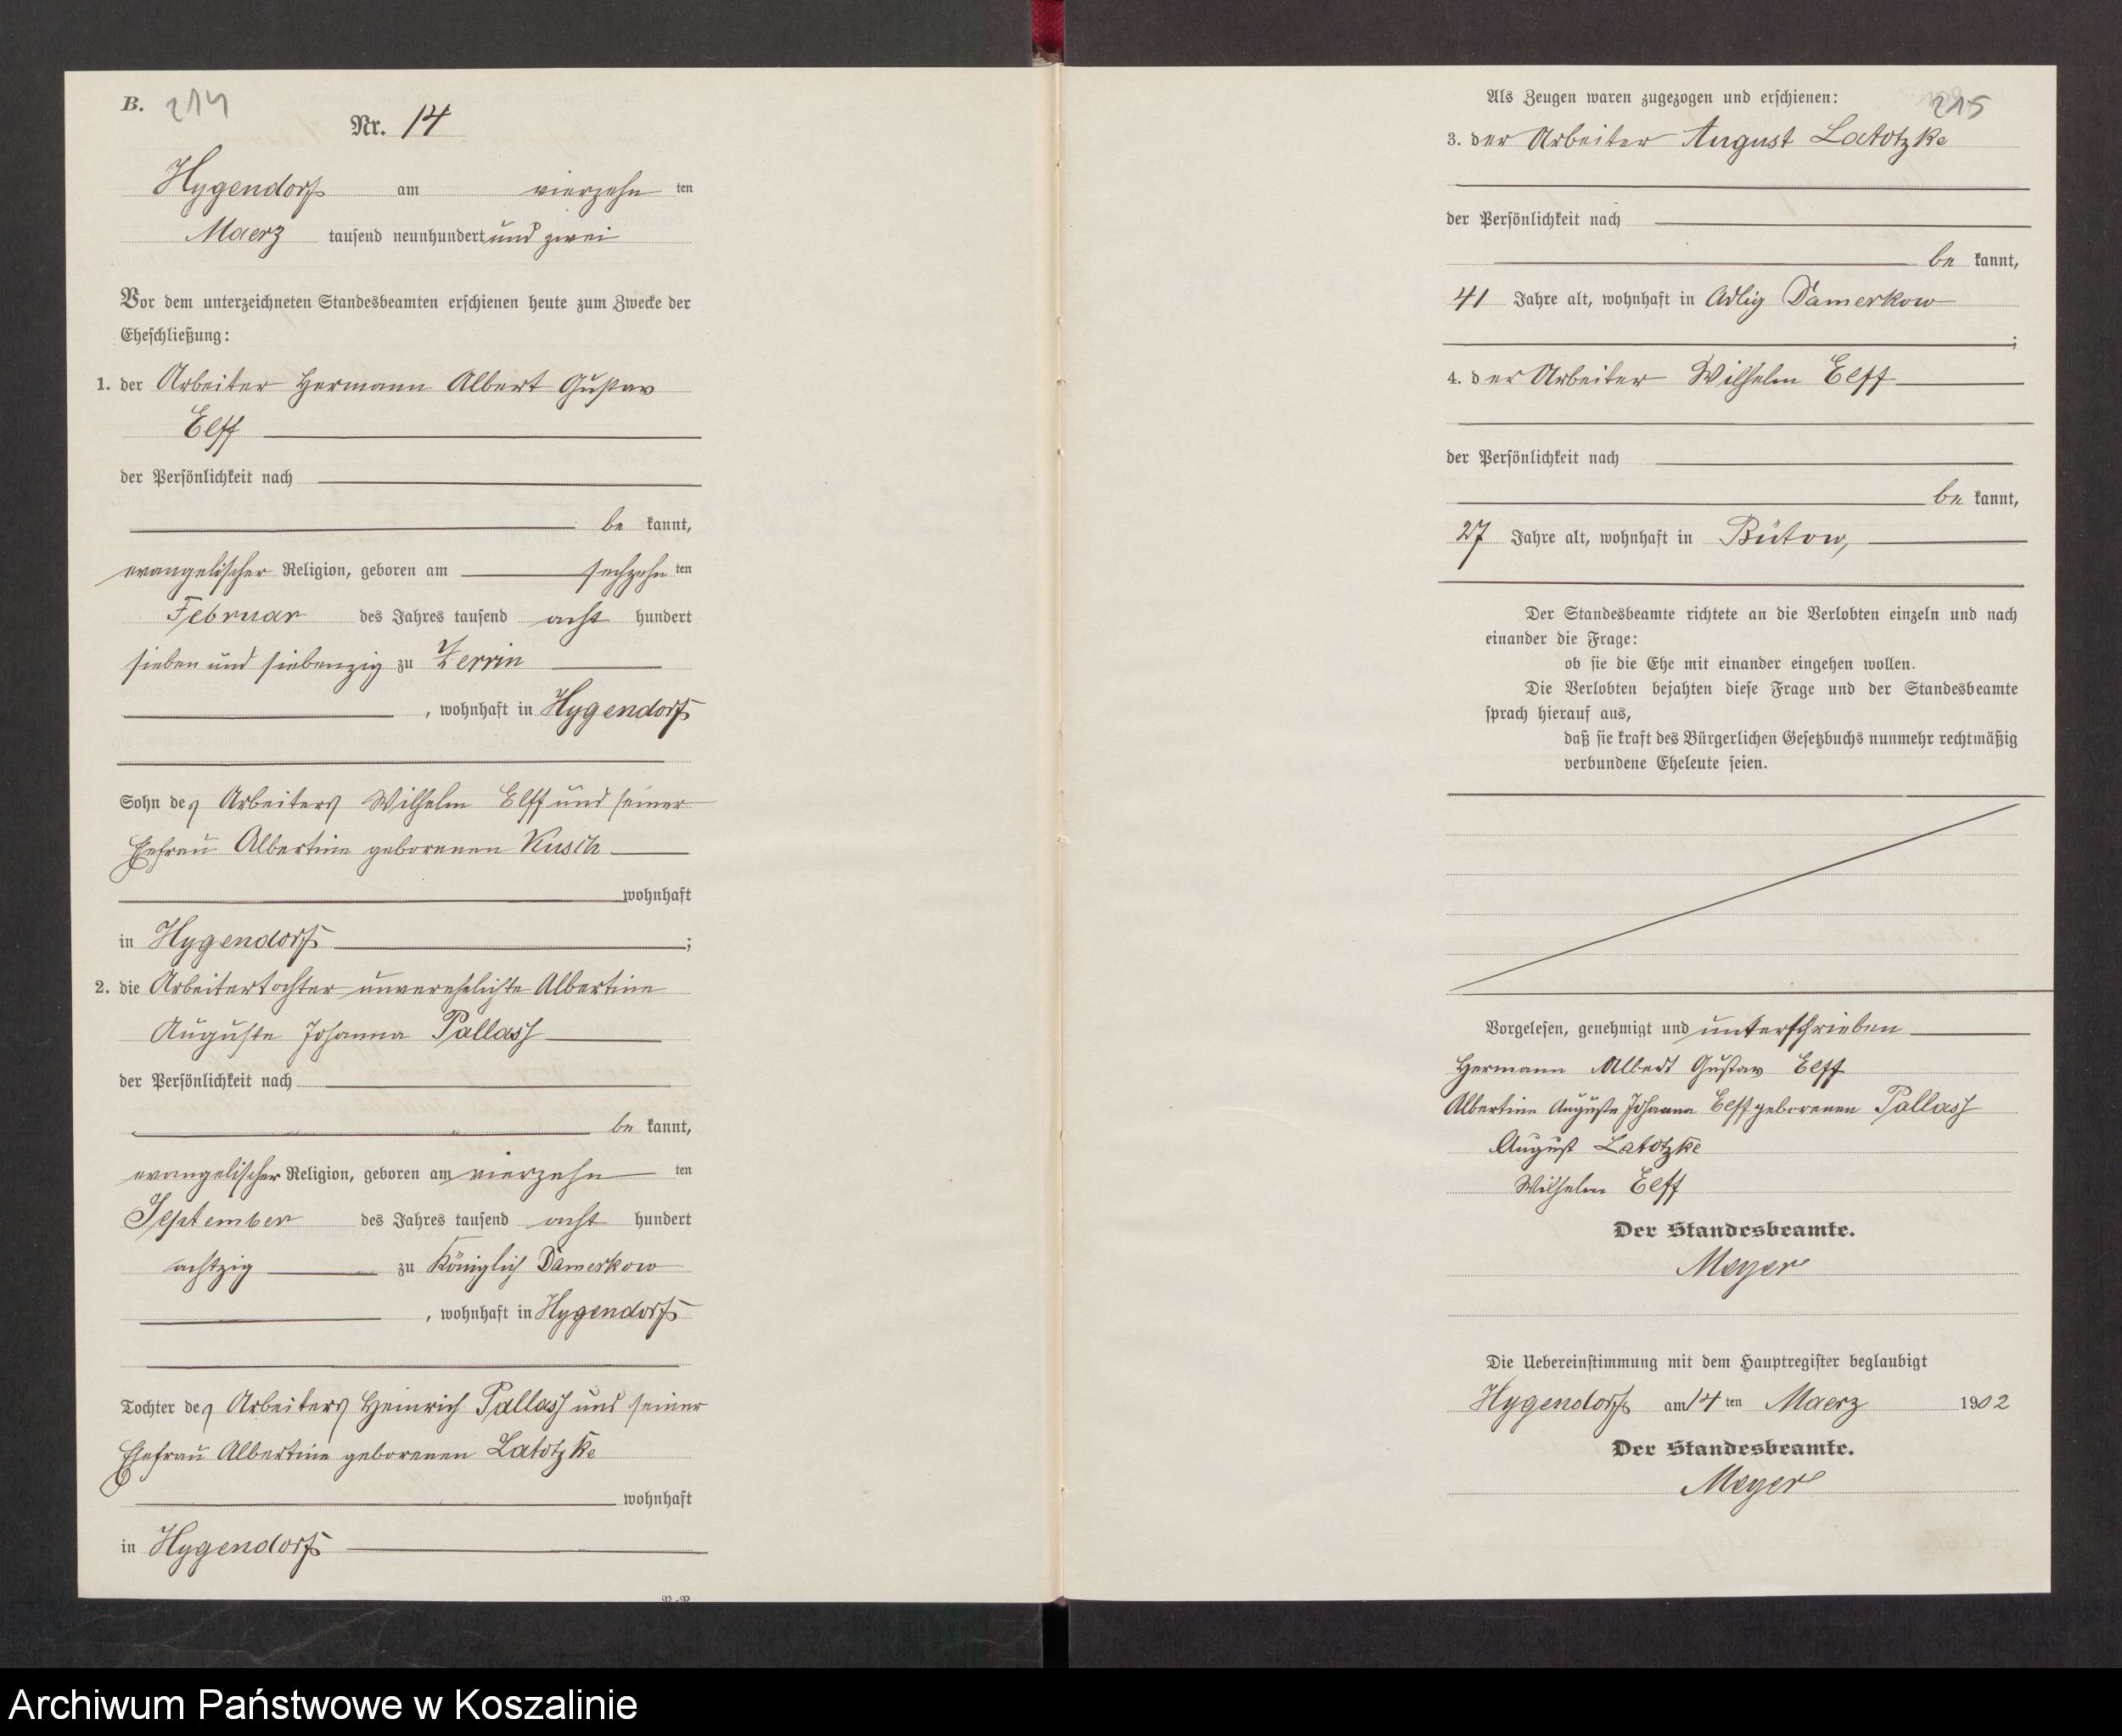 B. 214
Nr. 14
Hygendorf am vierzehn ten
Maerz tausend neunhundert und zwei
Vor dem unterzeichneten Standesbeamten erschienen heute zum Zwecke der
Eheschließung:
1. der Arbeiter Hermann Albert Gustav
Elff
der Persönlichkeit nach
be kannt,
evangelischer Religion, geboren am sechzehn ten
Februar des Jahres tausend acht hundert
sieben und siebenzig zu Zerrin
, wohnhaft in Hygendorf
Sohn des Arbeiters Wilhelm Elff und seiner
Ehefrau Albertine geborenen Kusch
wohnhaft
in Hygendorf ;
2. die Arbeitertochter unverehelichte Albertine
Auguste Johanna Pallasch
der Persönlichkeit nach
be kannt,
evangelischer Religion, geboren am vierzehn ten
September des Jahres tausend acht hundert
achtzig zu Königlich Damerkow
, wohnhaft in Hygendorf
Tochter des Arbeiters Heinrich Pallasch und seiner
Ehefrau Albertine geborenen Latotzke
wohnhaft
in Hygendorf
Als Zeugen waren zugezogen und erschienen: 215
3. der Arbeiter August Latotzke
der Persönlichkeit nach
be kannt,
41 Jahre alt, wohnhaft in Adlig Damerkow
;
4. der Arbeiter Wilhelm Elff
der Persönlichkeit nach
be kannt,
27 Jahre alt, wohnhaft in Bütow,
Der Standesbeamte richtete an die Verlobten einzeln und nach
einander die Frage:
ob sie die Ehe mit einander eingehen wollen.
Die Verlobten bejahten diese Frage und der Standesbeamte
sprach hierauf aus,
daß sie kraft des Bürgerlichen Gesetzbuchs nunmehr rechtmäßig
verbundene Eheleute seien.
Vorgelesen, genehmigt und unterschrieben
Hermann Albert Gustav Elff
Albertine Auguste Johanna Elff geborenen Pallasch
August Latotzke
Wilhelm Elff
Der Standesbeamte.
Meyer
Die Uebereinstimmung mit dem Hauptregister beglaubigt
Hygendorf am 14 ten Maerz 1902
Der Standesbeamte.
Meyer
Archiwum Państwowe w Koszalinie